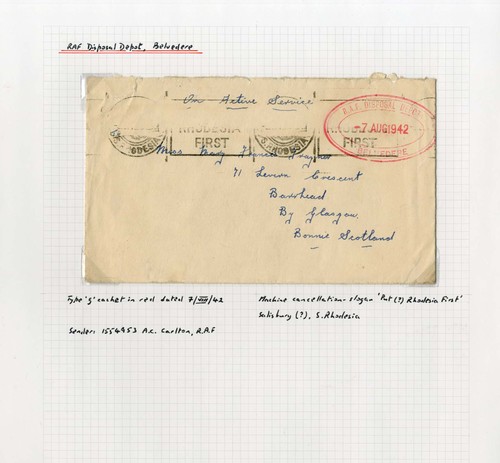 RAF Disposal Depot, Belvedere
On Active Service
R.A.F. DISPOSAL DEPOT
-7 AUG 1942
BELVEDERE
RHODESIA FIRST
S. RHODESIA
RHODESIA FIRST
Miss Mary
71 Levern Crescent
Barrhead
By Glasgow
Bonnie Scotland
Type '5' cachet in red dated 7/VIII/42
Machine cancellation - slogan 'Put (?) Rhodesia First'
Salisbury (?), S. Rhodesia
Sender: 1554953 A.C. Carlton, R.A.F